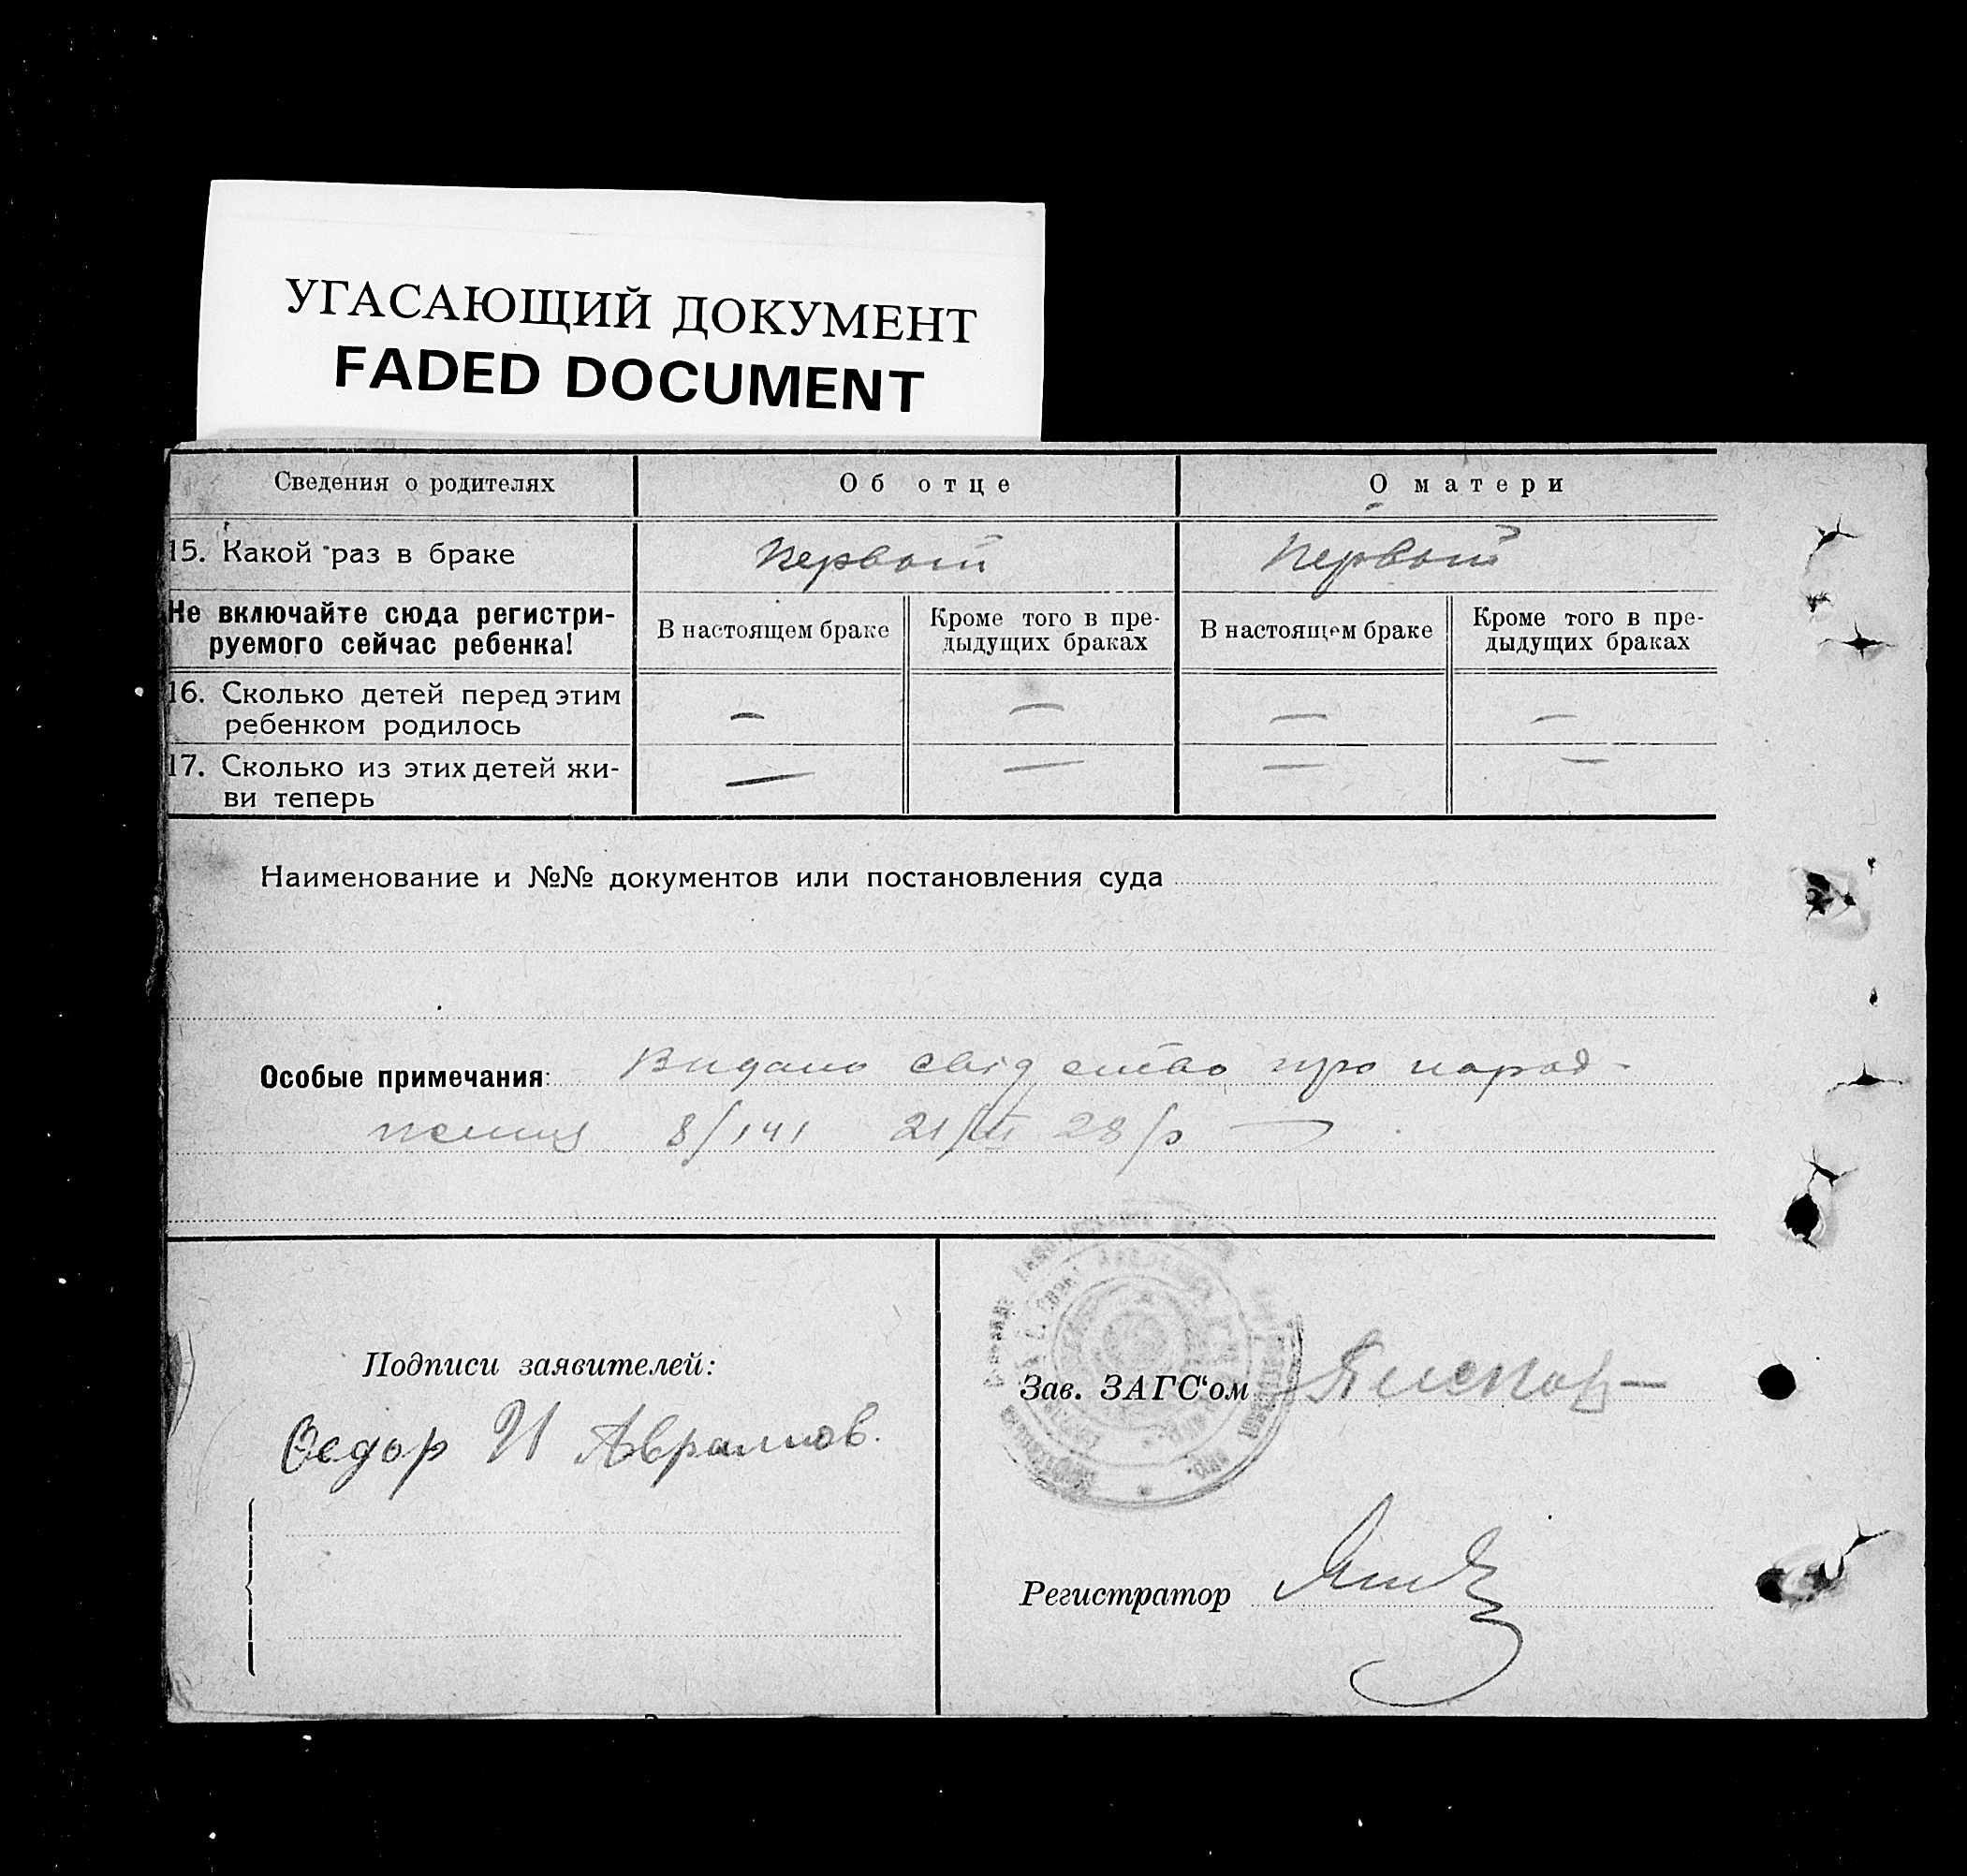 УГАСАЮЩИЙ ДОКУМЕНТ
FADED DOCUMENT
Сведения о родителях
Об отце
О матери
15. Какой раз в браке
первый
первый
Не включайте сюда регистри-
руемого сейчас ребенка!
В настоящем браке
Кроме того в пре-
дыдущих браках
В настоящем браке
Кроме того в пре-
дыдущих браках
16. Сколько детей перед этим
ребенком родилось
—
—
—
—
17. Сколько из этих детей жи-
ви теперь
—
—
—
—
Наименование и №№ документов или постановления суда
Особые примечания: Видано свідоцтво про народ-
ження 8/141 21/III 28/р
Подписи заявителей:
Федор И Аврамов.
Зав. ЗАГС'ом
Регистратор